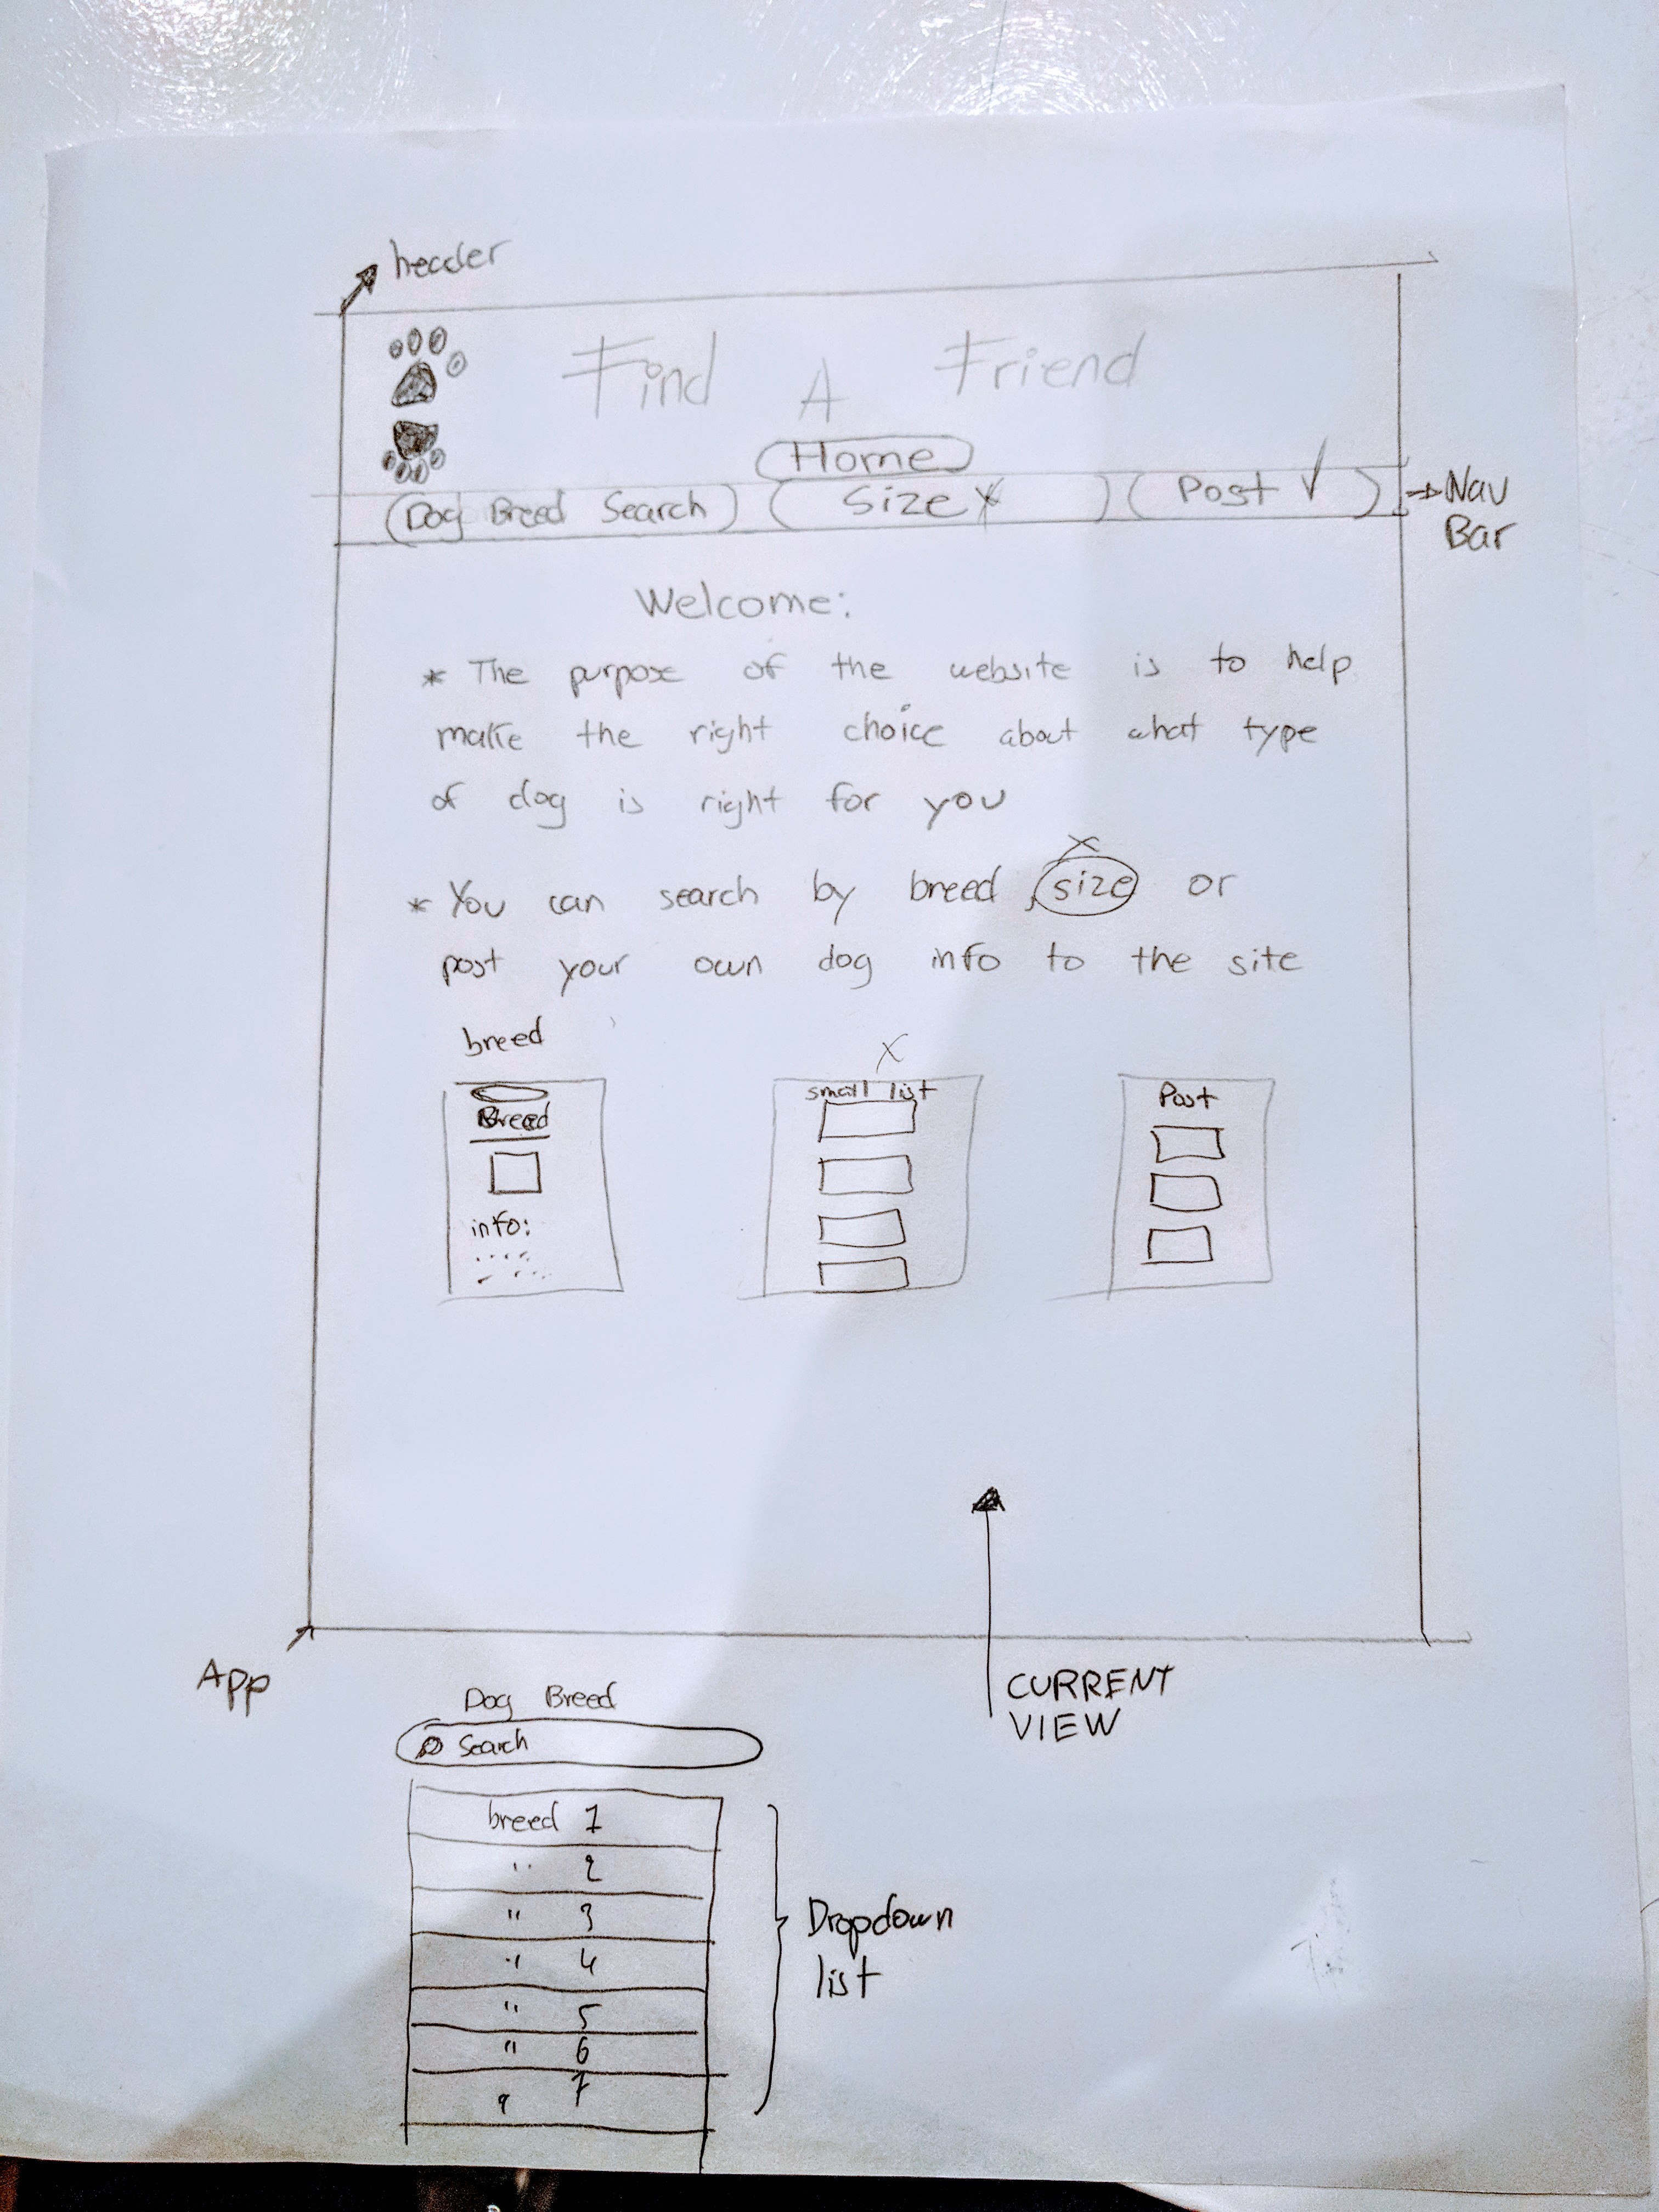 header
Find A Friend
Home
Dog Breed Search
Size x
Post ✓
Nav
Bar
Welcome:
* The purpose of the website is to help
make the right choice about what type
of dog is right for you
x
* You can search by breed, size or
post your own dog info to the site
breed
Breed
info:
x
small list
Post
App
CURRENT
VIEW
Dog Breed
Search
breed 1
" 2
" 3
" 4
" 5
" 6
" 7
Dropdown
list